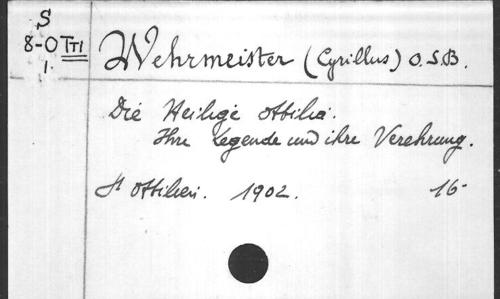 S
8-O TTI
1.
Wehrmeister (Cyrillus) O.S.B.
Die Heilige Ottilia.
Ihre Legende und ihre Verehrung.
St Ottilien. 1902. 16-